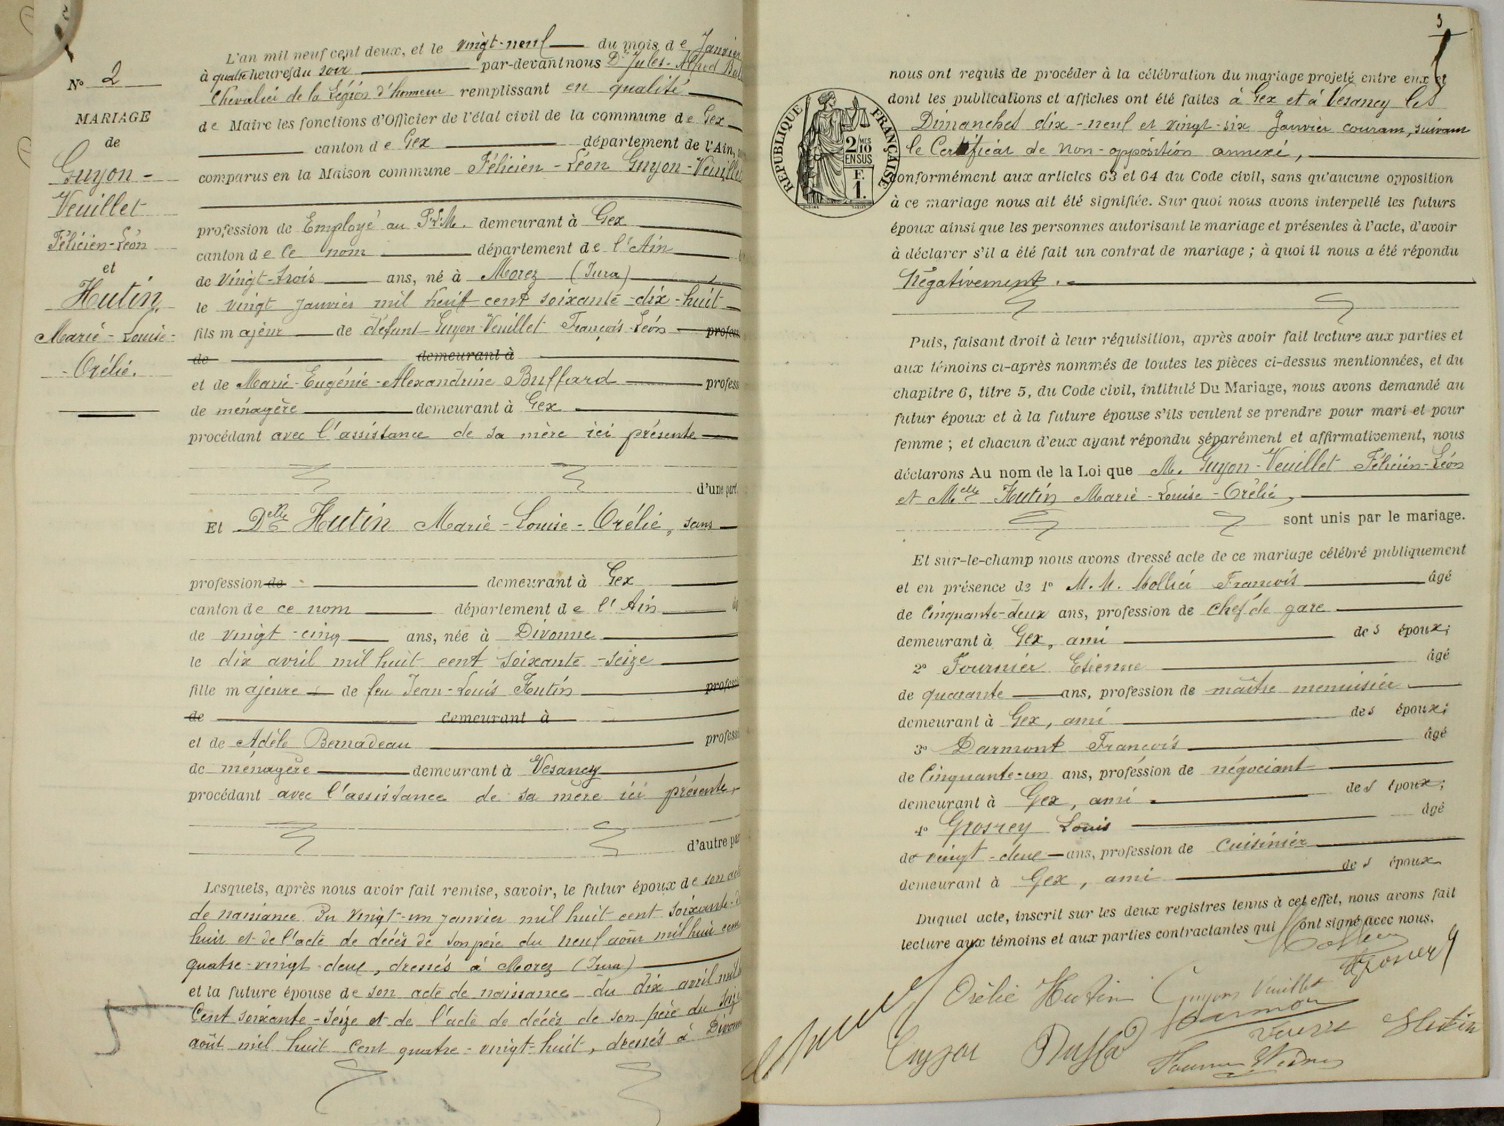 N° 2
MARIAGE
de
Guyon-
Veuillet
Félicien-Léon
et
Hutin,
Marie-Louise-
-Orélie.
L'an mil neuf cent deux, et le vingt-neuf du mois de Janvier
à quatre heures du soir par-devant nous Dr Jules-
Chevalier de la Légion d'honneur remplissant en qualité
de Maire les fonctions d'Officier de l'état civil de la commune de Gex
canton de Gex département de l'Ain,
comparus en la Maison commune Félicien-Léon Guyon-Veuillet
profession de Employé au P.L.M. demeurant à Gex
canton de ce nom département de l'Ain
de vingt-trois ans, né à Morez (Jura)
le vingt janvier mil huit cent soixante-dix-huit
fils majeur de défunt Guyon-Veuillet François-Léon profess
de demeurant à
et de Marie-Eugénie-Alexandrine Buffard profess
de ménagère demeurant à Gex
procédant avec l'assistance de sa mère ici présente
d'une part.
Et Delle Hutin Marie-Louise-Orélie, sans
profession de demeurant à Gex
canton de ce nom département de l'Ain
de vingt-cinq ans, née à Divonne
le dix avril mil huit cent soixante-seize
fille majeure de feu Jean-Louis Hutin profess
de demeurant à
et de Adèle Bernadeau profess
de ménagère demeurant à Vesancy
procédant avec l'assistance de sa mère ici présente
d'autre par
Lesquels, après nous avoir fait remise, savoir, le futur époux de son acte
de naissance du vingt-un janvier mil huit cent soixante-
huit et de l'acte de décès de son père du neuf août mil huit cent
quatre-vingt-deux, dressés à Morez (Jura)
et la future épouse de son acte de naissance du dix avril mil
cent soixante-seize et de l'acte de décès de son père du seize
août mil huit cent quatre-vingt-huit, dressés à Divonne
3
nous ont requis de procéder à la célébration du mariage projeté entre eux et
dont les publications et affiches ont été faites à Gex et à Vesancy les
Dimanches dix-neuf et vingt-six Janvier courant, suivant
le Certificat de non-opposition annexé,
RÉPUBLIQUE FRANÇAISE
2/10 MES EN SUS
F. 1.
conformément aux articles 63 et 64 du Code civil, sans qu'aucune opposition
à ce mariage nous ait été signifiée. Sur quoi nous avons interpellé les futurs
époux ainsi que les personnes autorisant le mariage et présentes à l'acte, d'avoir
à déclarer s'il a été fait un contrat de mariage ; à quoi il nous a été répondu
Négativement.
Puis, faisant droit à leur réquisition, après avoir fait lecture aux parties et
aux témoins ci-après nommés de toutes les pièces ci-dessus mentionnées, et du
chapitre 6, titre 5, du Code civil, intitulé Du Mariage, nous avons demandé au
futur époux et à la future épouse s'ils veulent se prendre pour mari et pour
femme ; et chacun d'eux ayant répondu séparément et affirmativement, nous
déclarons Au nom de la Loi que M. Guyon-Veuillet Félicien-Léon
et Melle Hutin Marie-Louise-Orélie,
sont unis par le mariage.
Et sur-le-champ nous avons dressé acte de ce mariage célébré publiquement
et en présence de 1° M.M. Mollier François âgé
de Cinquante-deux ans, profession de chef de gare
demeurant à Gex, ami des époux;
2° Fournier Etienne âgé
de quarante ans, profession de maître menuisier
demeurant à Gex, ami des époux;
3° Darmont François âgé
de Cinquante-un ans, profession de négociant
demeurant à Gex, ami des époux;
4° Grosrey Louis âgé
de vingt-deux ans, profession de cuisinier
demeurant à Gex, ami des époux
Duquel acte, inscrit sur les deux registres tenus à cet effet, nous avons fait
lecture aux témoins et aux parties contractantes qui ont signé avec nous.
Orélie Hutin Guyon Veuillet Grosrey
Darmon
Buffard